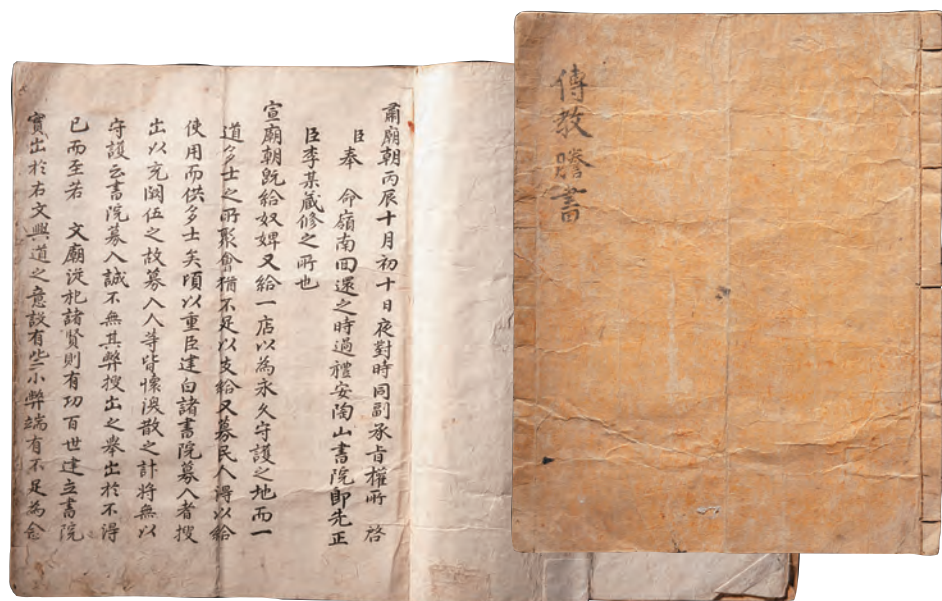 傳教謄書
肅廟朝丙辰十月初十日夜對時同副承旨權所 啓
臣奉 命嶺南回還之時過禮安陶山書院即先正
臣李某藏修之所也
宣廟朝既給奴婢又給一店以為永久守護之地而一
道多士之所聚會猶不足以支給又募民人得以給
使用而供多士矣頃以重臣建白諸書院募入者搜
出以充闕伍之故募入人等皆懷渙散之計將無以
守護云書院募入誠不無其弊搜出之舉出於不得
已而至若 文廟從祀諸賢則有功百世建立書院
實出於右文興道之意設有些小弊端有不足為念